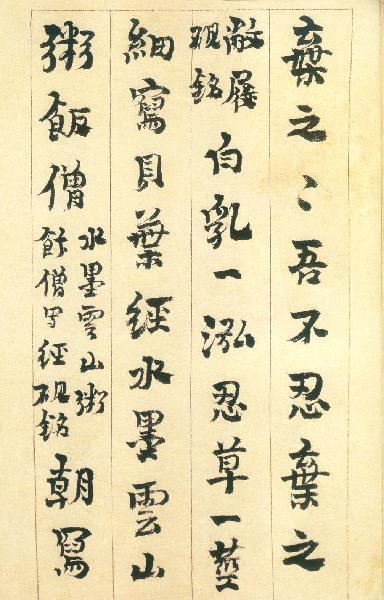 棄之〻吾不忍棄之
敝屣硯銘白乳一泓忍草一莖
細寫貝葉經水墨雲山
粥飯僧水墨雲山粥飰僧写經硯銘朝冩